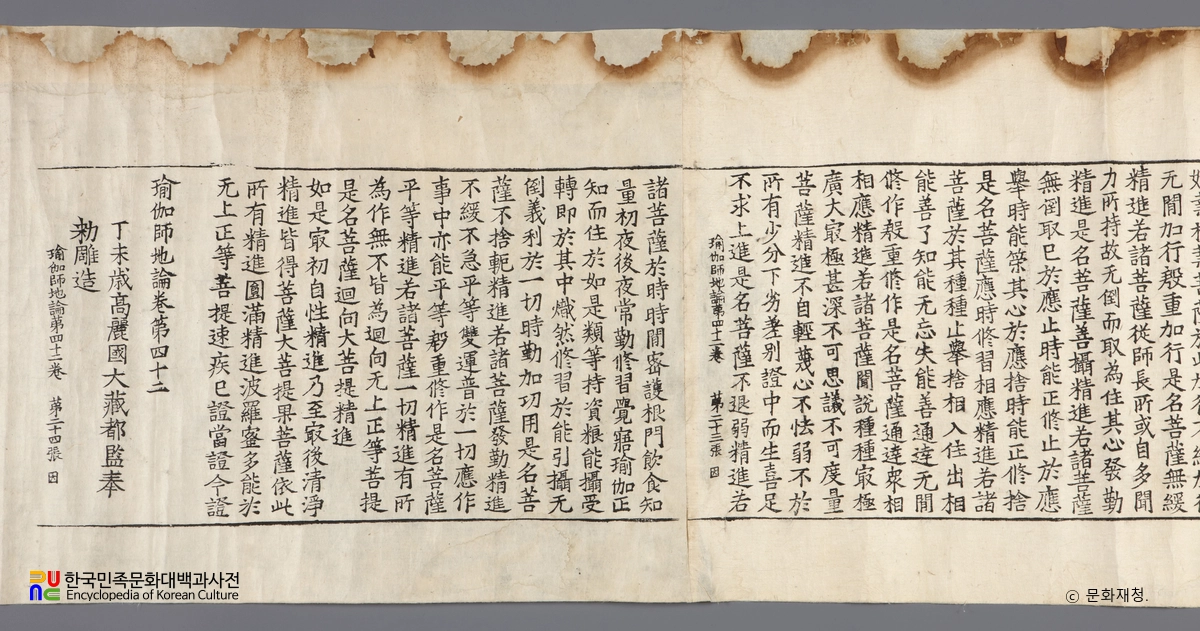 无間加行殷重加行是名菩薩無緩
精進若諸菩薩從師長所或自多聞
力所持故无倒而取為住其心發勤
精進是名菩薩善攝精進若諸菩薩
無倒取已於應止時能正修止於應
擧時能策其心於應捨時能正修捨
是名菩薩應時修習相應精進若諸
菩薩於其種種止擧捨相入住出相
能善了知能无忘失能善通達无間
修作殷重修作是名菩薩通達衆相
相應精進若諸菩薩聞說種種㝡極
廣大㝡極甚深不可思議不可度量
菩薩精進不自輕蔑心不怯弱不於
所有少分下劣差别證中而生喜足
不求上進是名菩薩不退弱精進若
瑜伽師地論第四十二卷 第二十三張 因
諸菩薩於時時間密護根門飲食知
量初夜後夜常勤修習覺寤瑜伽正
知而住於如是類等持資粮能攝受
轉即於其中熾然修習於能引攝无
倒義利於一切時勤加功用是名菩
薩不捨軛精進若諸菩薩發勤精進
不緩不急平等雙運普於一切應作
事中亦能平等殷重修作是名菩薩
平等精進若諸菩薩一切精進有所
為作無不皆為迴向无上正等菩提
是名菩薩迴向大菩提精進
如是㝡初自性精進乃至㝡後清淨
精進皆得菩薩大菩提果菩薩依此
所有精進圓滿精進波羅蜜多能於
无上正等菩提速疾已證當證今證
瑜伽師地論卷第四十二
丁未歲高麗國大藏都監奉
勑雕造
瑜伽師地論第四十二卷 第二十四張 因
한국민족문화대백과사전
Encyclopedia of Korean Culture
ⓒ 문화재청.